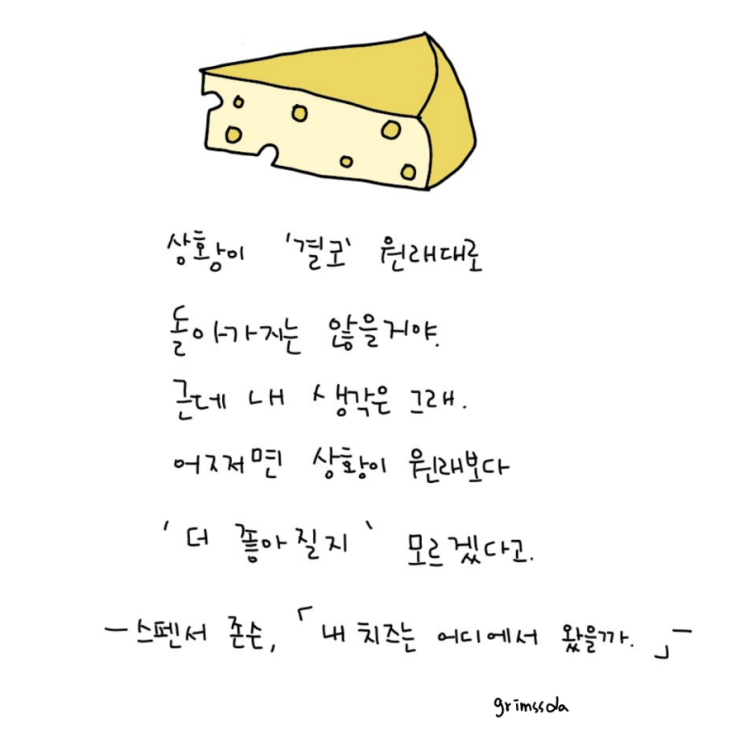 상황이 '결코' 원래대로
돌아가지는 않을거야.
근데 내 생각은 그래.
어쩌면 상황이 원래보다
'더 좋아질지' 모르겠다고.
- 스펜서 존슨, 「내 치즈는 어디에서 왔을까.」-
grimssda